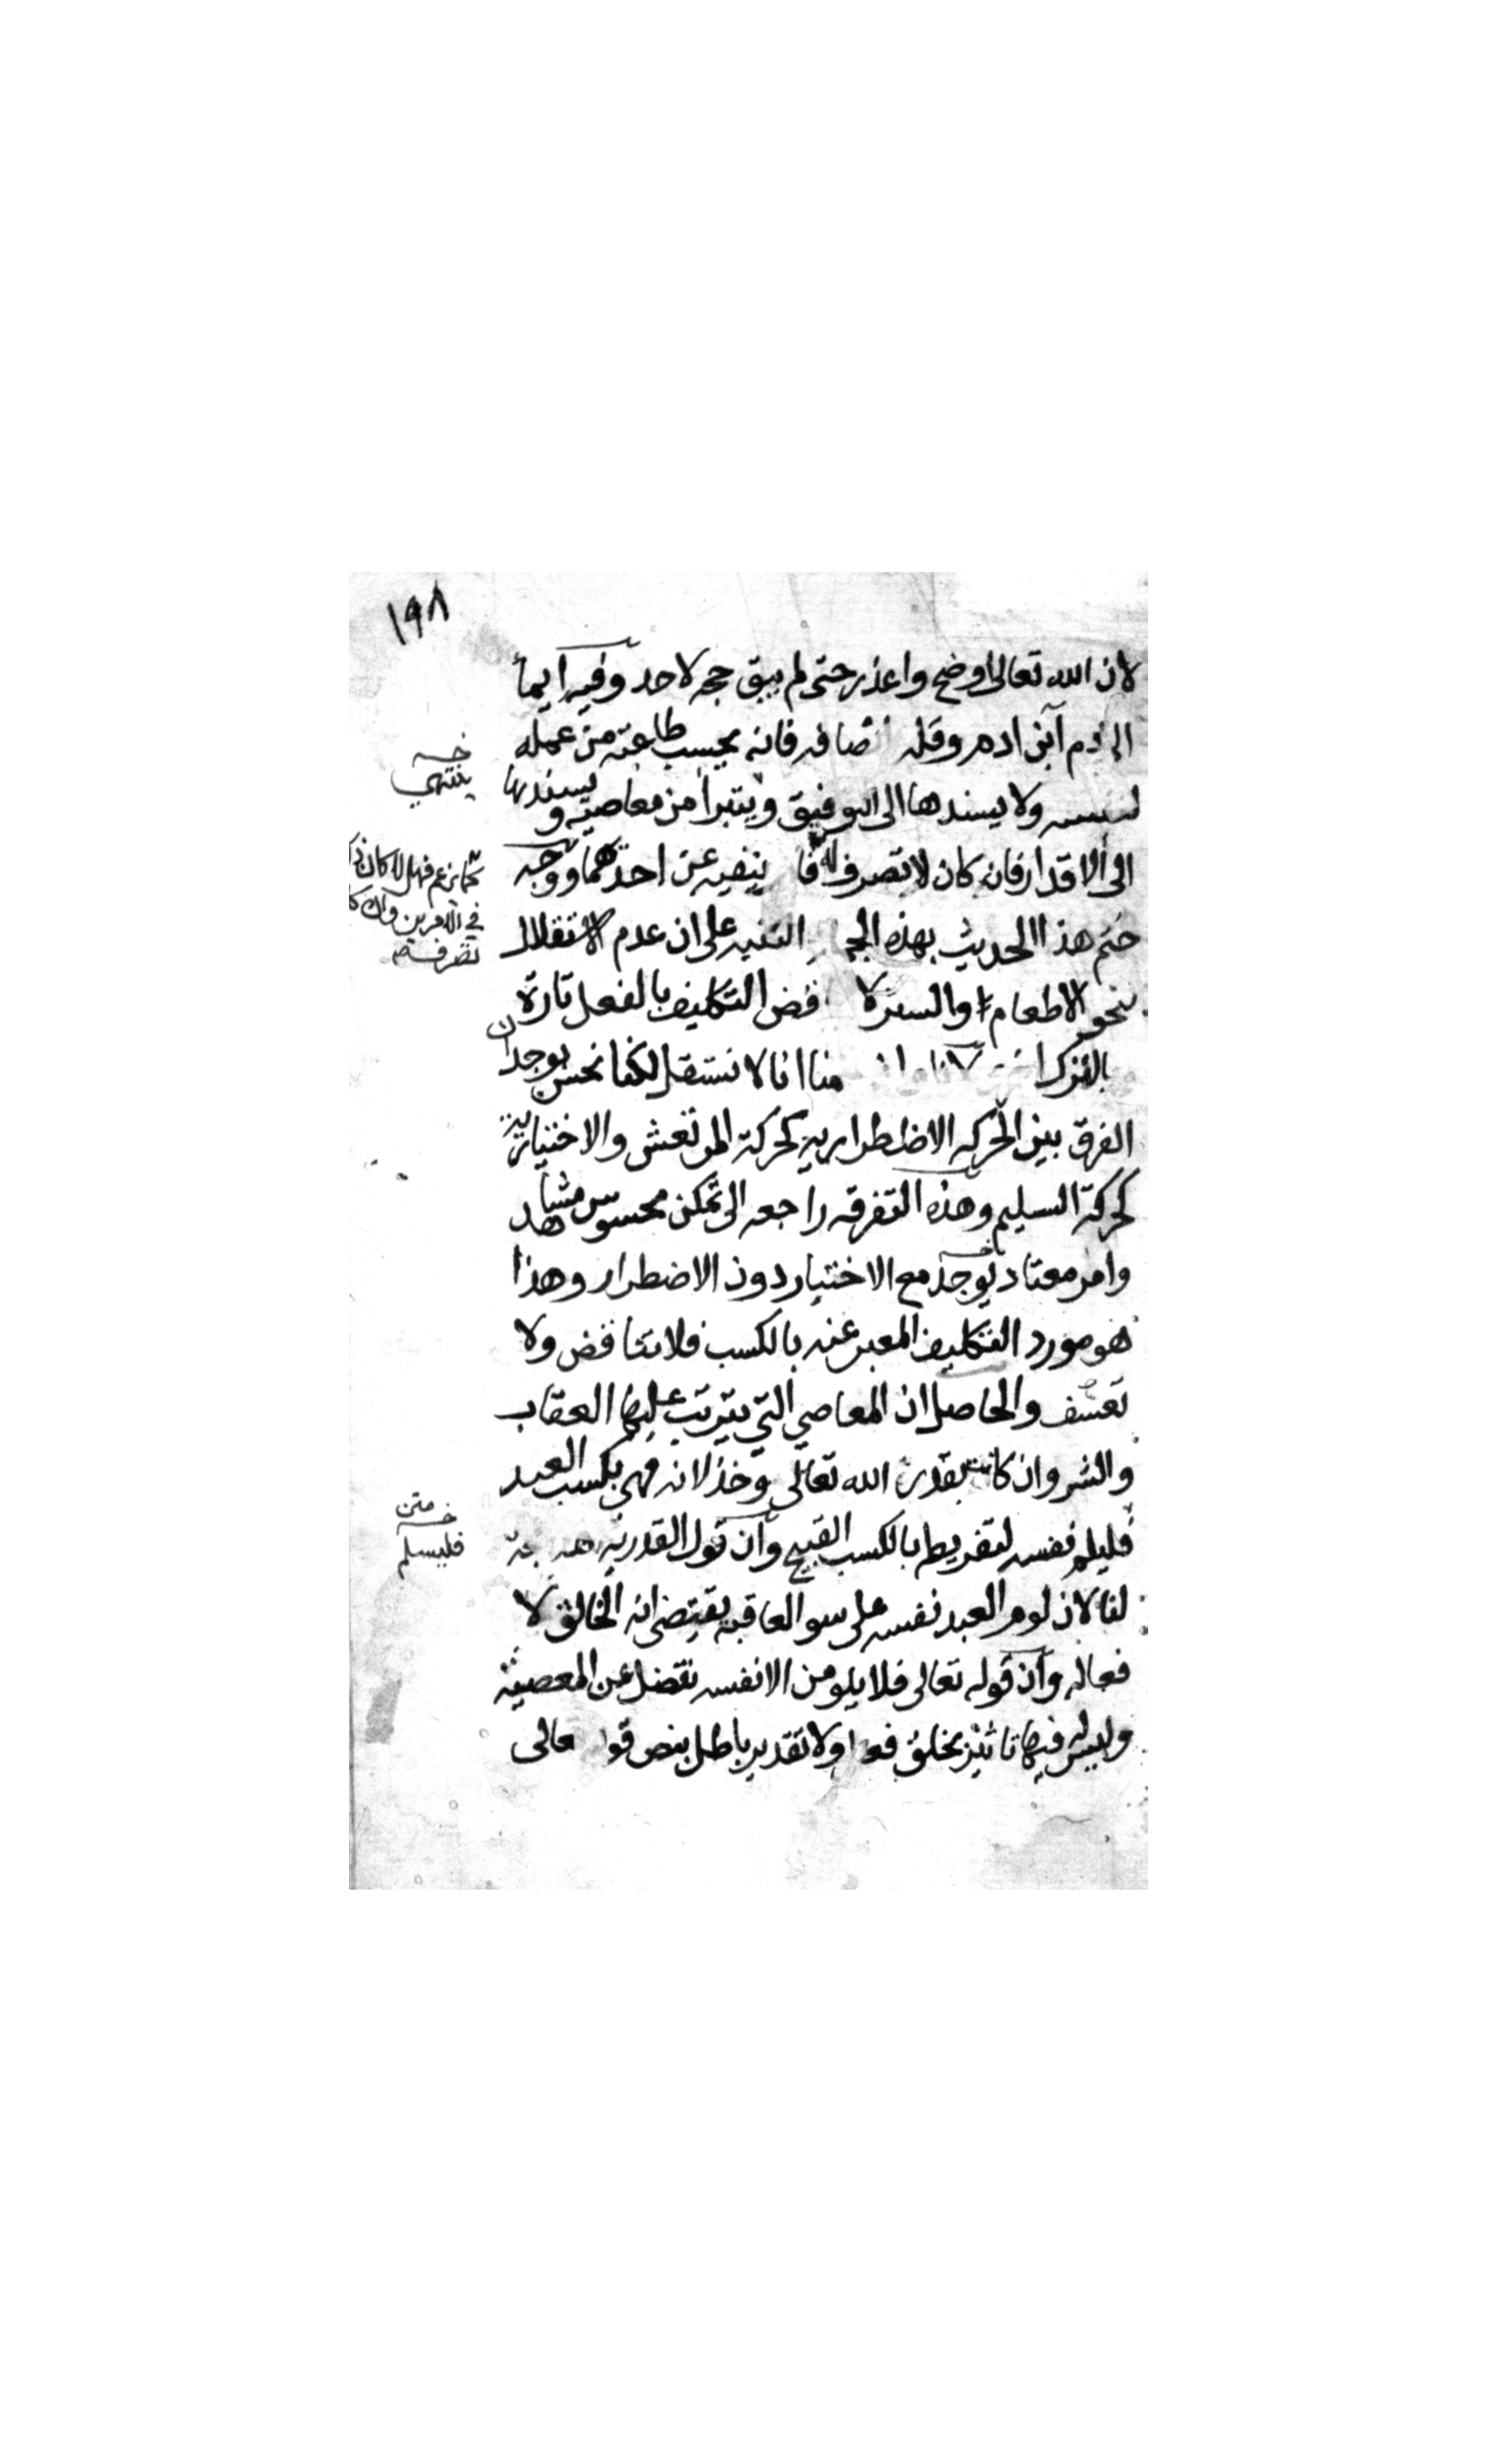 ١٩٨
لان الله تعالى اوضح واعذر حتى لم يبق حجه لاحد وفيه ايما
الى ذم ابن ادم وقله انصافه فانه يحسب طاعته من عمله
لنفسه ولا يسندها الى التوفيق ويتبرا من معاصيه ويسندها
الى الاقدار فان كان لا تصرف له فا ينفيه عن احدهما ووجه
ختم هذا الحديث بهذه الجمله التنبيه على ان عدم الاستقلال
بنحو الاطعام والستر لا يناقض التكليف بالفعل تارة
بالترك منا انا لا نستقل لكنا نحس بوجدان
الفرق بين الحركه الاضطراريه كحركة المرتعش والاختياريه
كحركة السليم وهذه التفرقه راجعه الى تمكن محسوس مشاهد
وامر معتاد يوجد مع الاختيار دون الاضطرار وهذا
هو مورد التكليف المعبر عنه بالكسب فلا تناقض ولا
تعسف والحاصل ان المعاصي التي يترتب عليها العقاب
والشر وان كانت بقدرة الله تعالى وخذلانه فهي بكسب العبد
فليلم نفسه لتفريطه بالكسب القبيح وان قول القدريه هذه حجة
لنا لان لوم العبد نفسه على سو العاقبه يقتضي انه الخالق لا
فعاله وان قوله تعالى فلا يلومن الا نفسه تنصل عن المعصية
وليس له فيها تاثير بخلق فعل ولا تقدير باطل بنص قوله تعالى
ينتهي
كما يزعم فهل لا كان
في الامرين وان كا
تصرف
متن
فليسلم